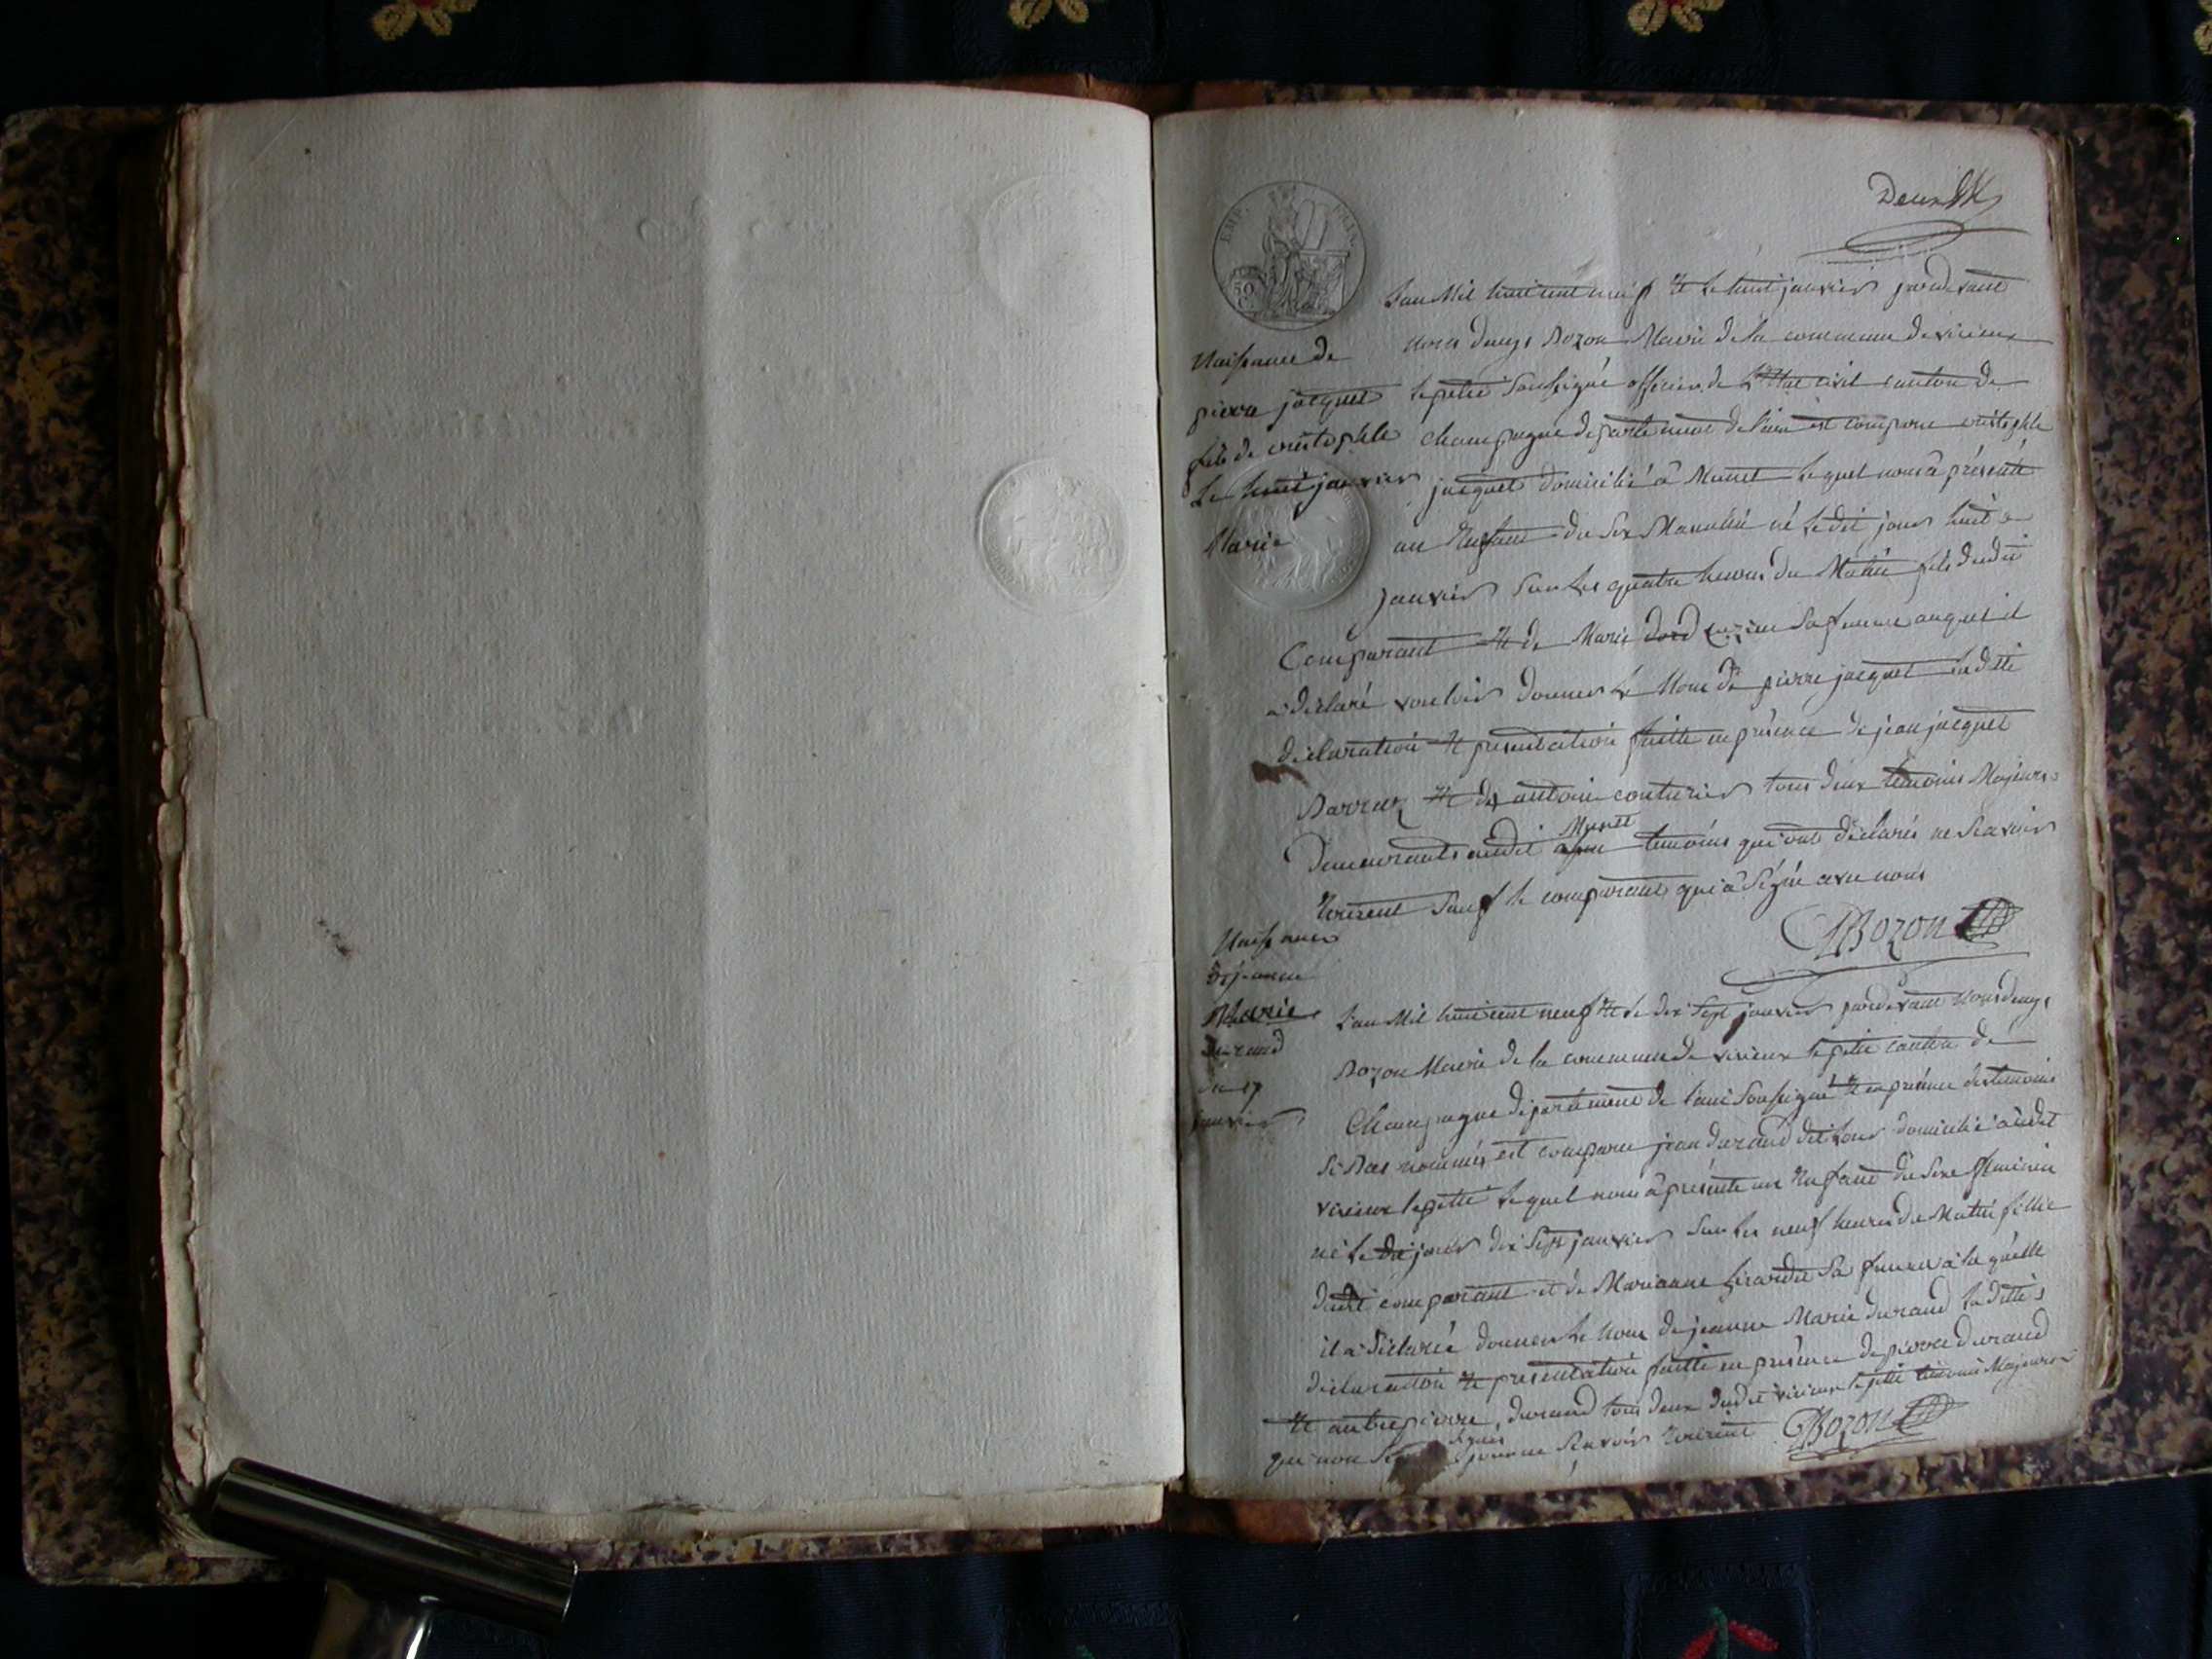 Deux
EMP. FRAN.
50
C
L'an Mil huit cent neuf Et le huit janvier pardevant
nous denys Bozon Maire de la commune de virieux
le petit Soussigné officier de L'Etat civil canton de
champagne departement de l'ain est comparu cristophle
jacquet domicilié à Munet lequel nous à présenté
un Enfant du sex Masculin né le dit jour huit
janvier Sur les quatre heures du Matin fils dudit
Comparant Et de Marie sa femme auquel il
a déclaré vouloir donner le Nom de pierre jacquet la ditte
déclaration Et presentation faitte en présence de jean jacquet
Barraz Et de antoine couturier tous deux temoins Majeurs
Demeurants audit Munet temoins qui ont déclarés ne Scavoir
Ecrirent Sauf le comparant qui à Signé avec nous
DBozon
Naissance de
pierre jacquet
fils de cristophle
le huit janvier
Marie
Naissance
de jeanne
Marie
durand
du 17
janvier
L'an Mil huit cent neuf Et le dix Sept janvier pardevant Nous denys
Bozon Maire de la commune de virieux le petit canton de
Champagne département de l'ain Soussigné Et en présence des temoins
si Bas nommés est comparu jean durand dit domicilié audit
virieux le petit lequel nous à présenté un Enfant du Sexe féminin
né le jour dix Sept janvier Sur les neuf heures du Matin fillie
dudit comparant et de Marianne sa femme à la quelle
il a déclaré donner le Nom de jeanne Marie durand la ditte
déclaration Et presentation faitte en présence de pierre durand
Et autre pierre durand tous deux dudit virieux le petit temoins Majeurs
qui non signés pour ne Scavoir Ecrirent DBozon